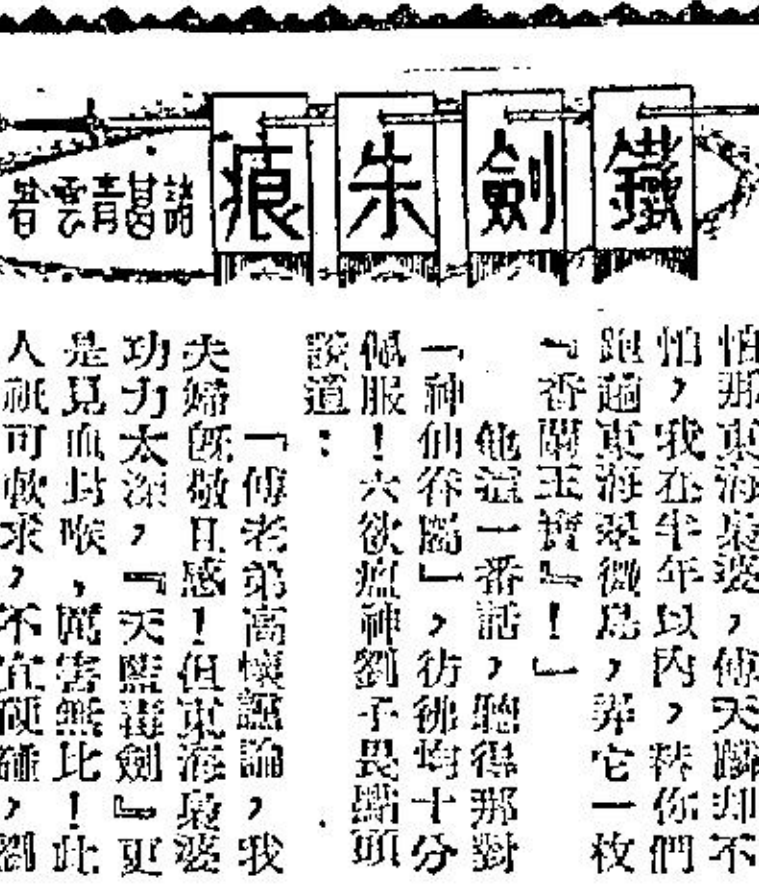 鐵劍朱痕
諸葛青雲著
怕那東海梟婆，傅天麟却不
怕，我在半年以內，替你們
跑趟東海翠微島，弄它一枚
『寶』！」
這一番話，聽得那對
「神仙眷屬」，彷彿均十分
佩服！六欲瘟神劉子畏點頭
道：
「傅老弟高懷讜論，我
夫婦既敬且感！但東海梟婆
功力太深，『天藍毒劍』更
是見血封喉，厲害無比！此
人祇可軟求，不宜硬碰，劉